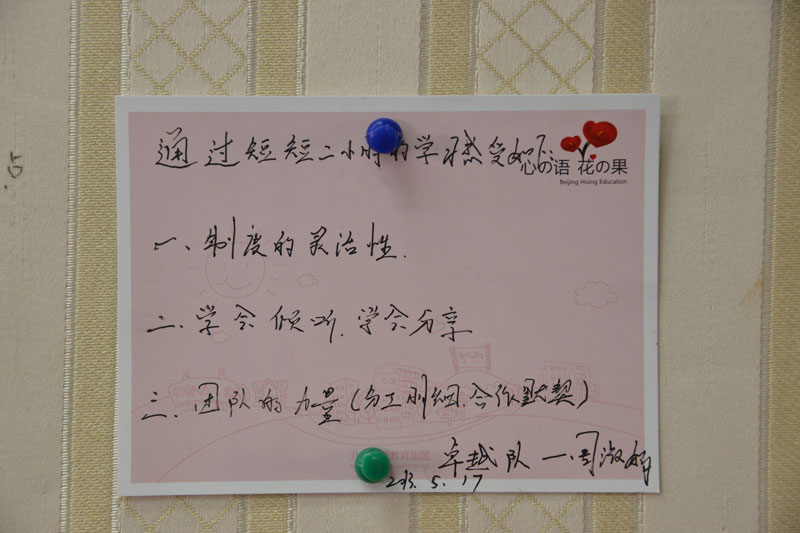 通过短短二小时的学习感受如下:
心の语 花の果
Beijing Hoing Education
一、制度的灵活性.
二、学会倾听.学会分享
三、团队的力量(分工明细.合作默契)
教育集团
卓越队 一周淑娟
2013.5.17